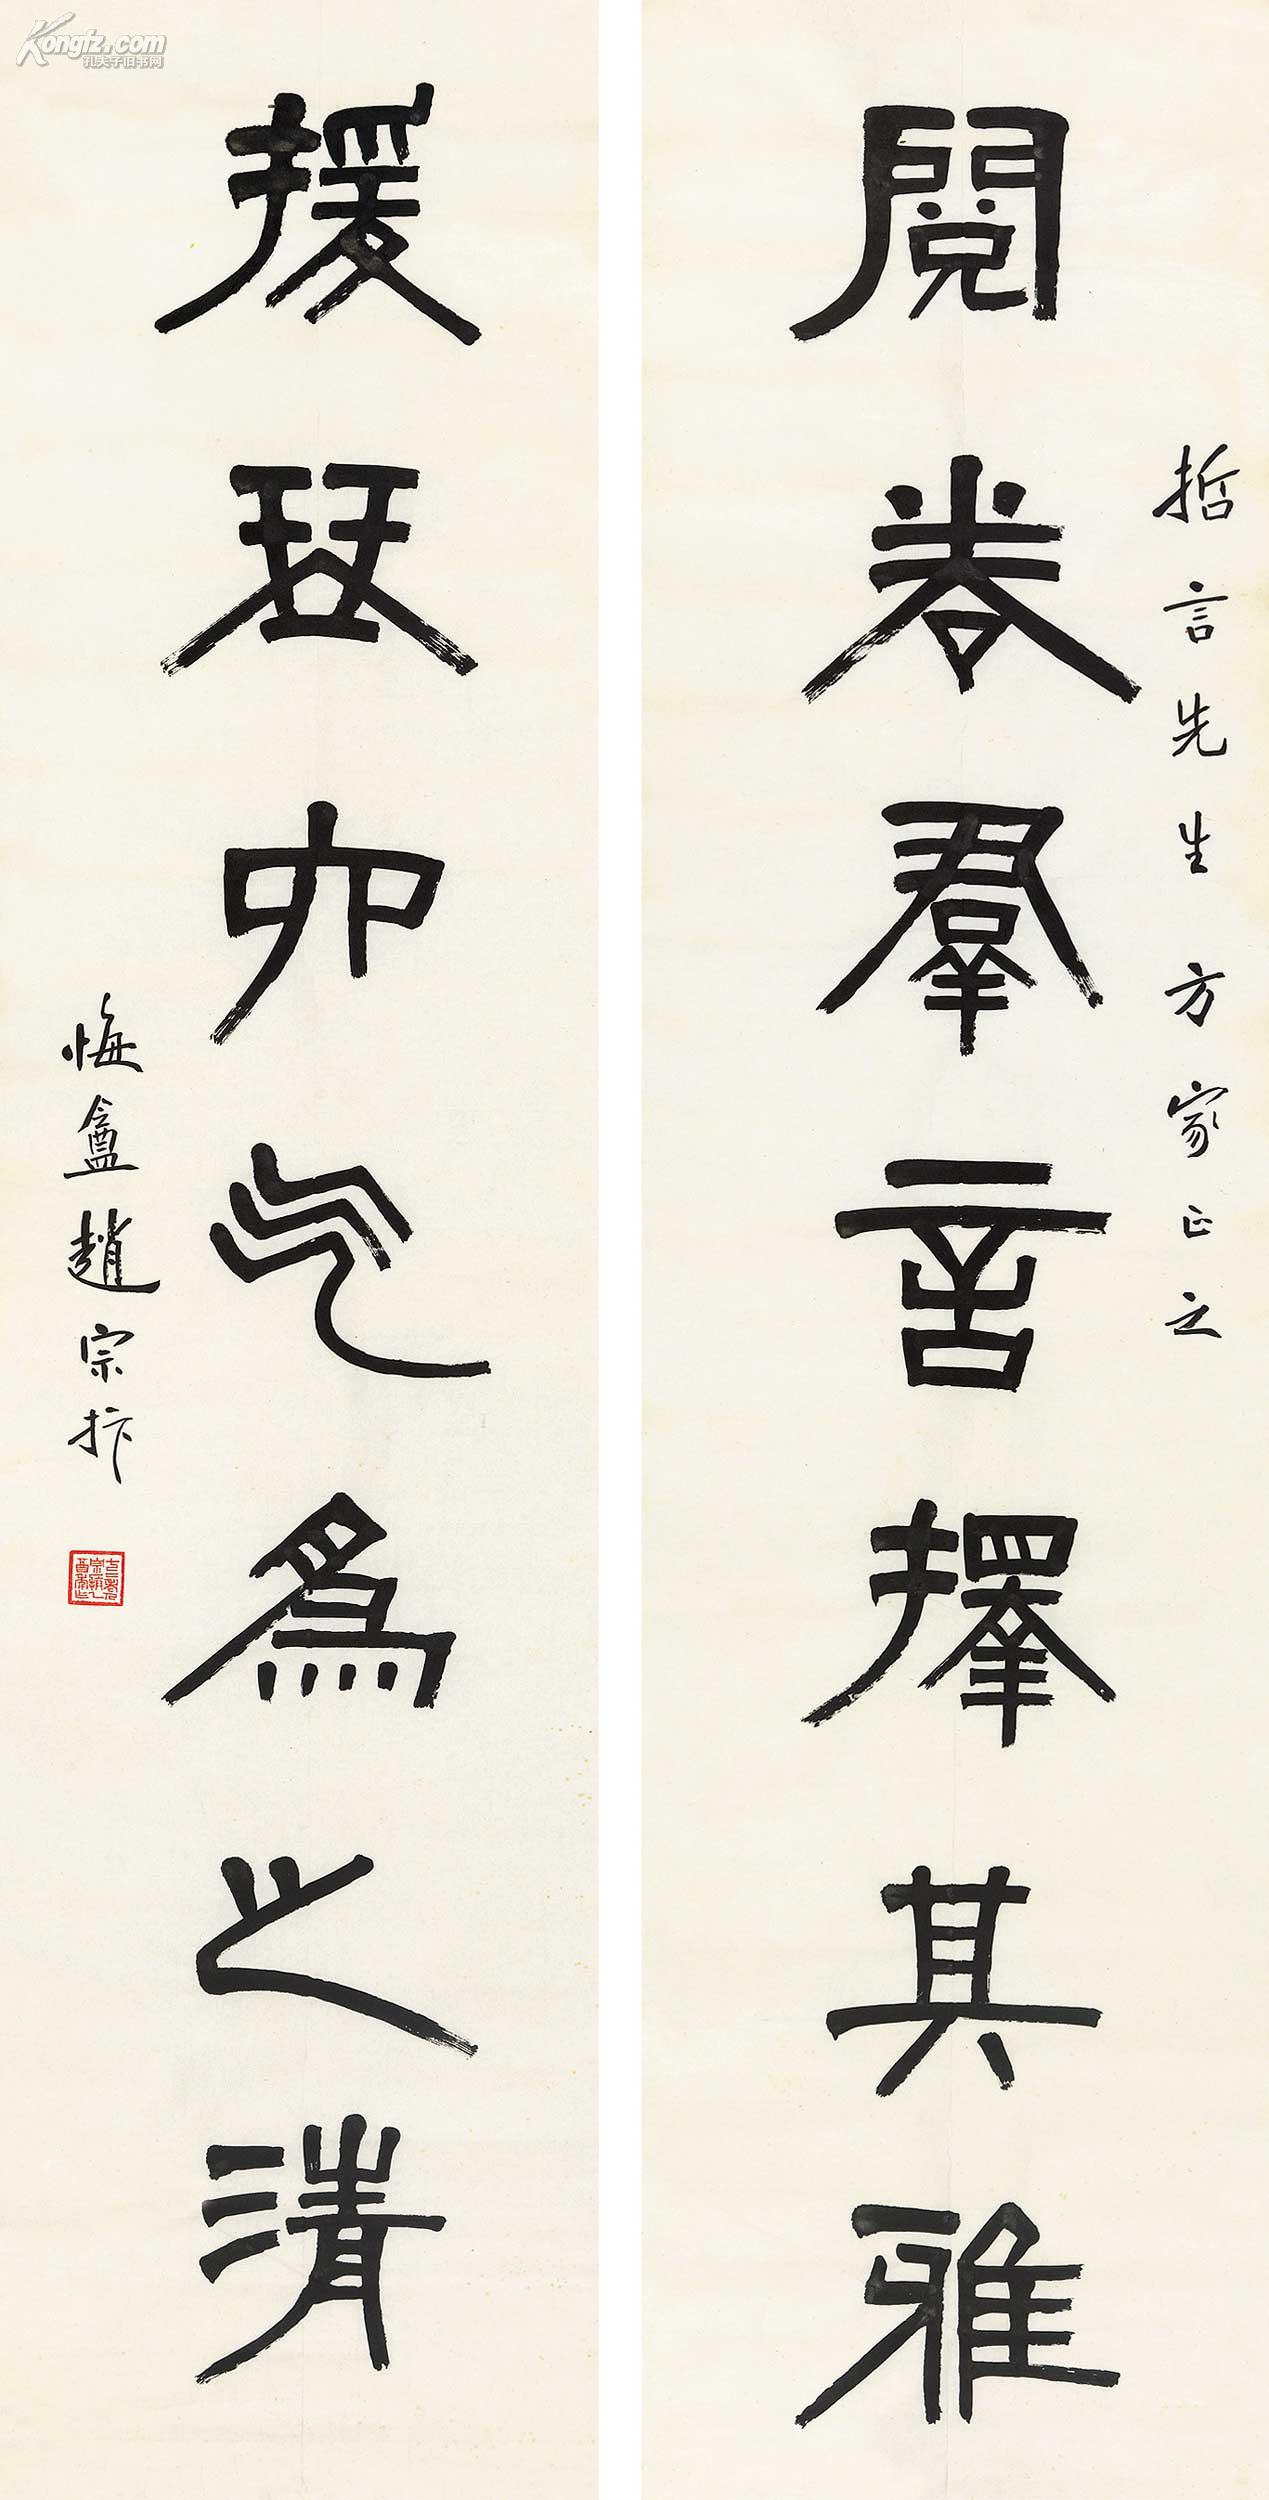 哲言先生方家正之
閱卷羣言擇其雅
援琴六气為之清
悔盦趙宗抃
Kongfz.com
孔夫子旧书网